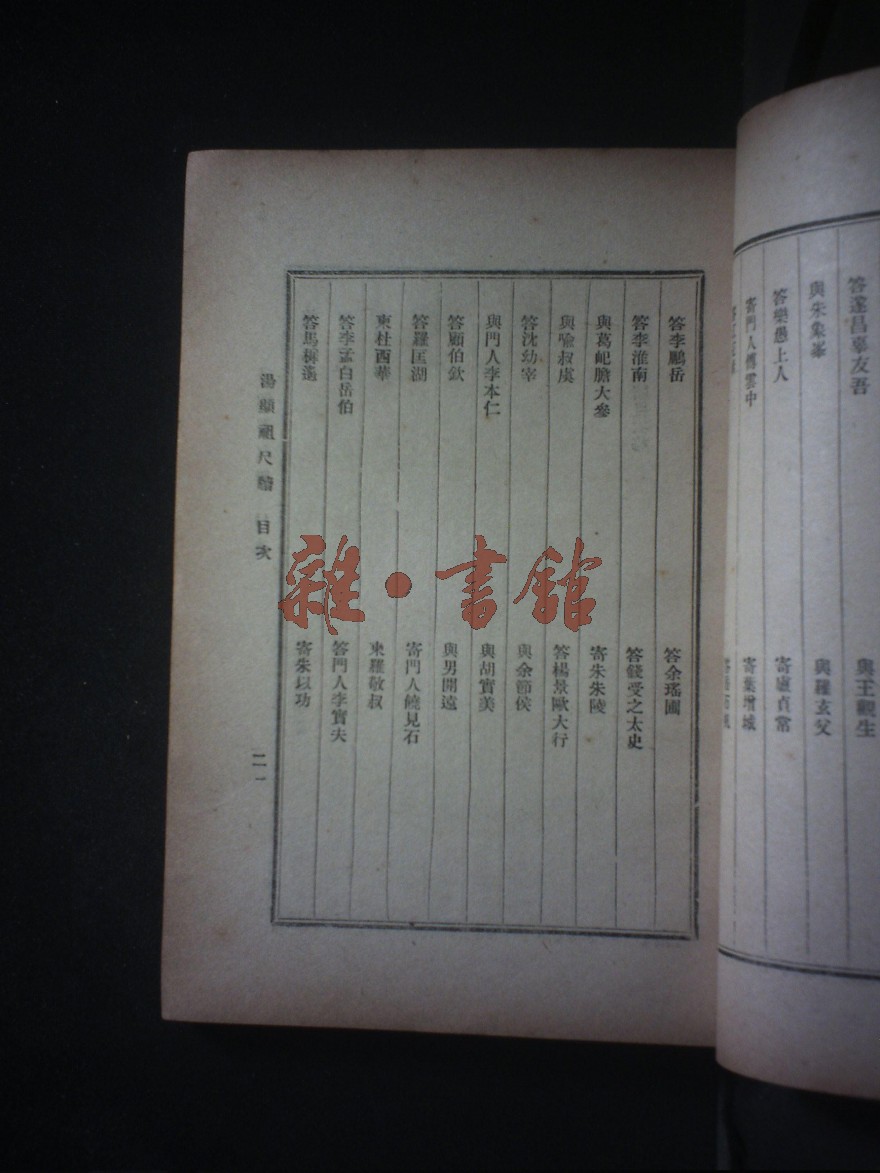 答遂昌辜友吾
與王觀生
與朱象峯
與羅玄父
答樂愚上人
寄盧貞常
寄門人傅雲中
寄葉增城
答李鵬岳
答余瑤圃
答李淮南
答錢受之太史
與葛屺瞻大參
寄朱朱陵
與喻叔虞
答楊景歐大行
答沈幼宰
與余節侯
與門人李本仁
與胡實美
答顧伯欽
與男開遠
答羅匡湖
寄門人饒見石
柬杜西華
柬羅敬叔
答李孟白岳伯
答門人李實夫
答馬
寄朱以功
湯顯祖尺牘 目次
二一
雜·書館